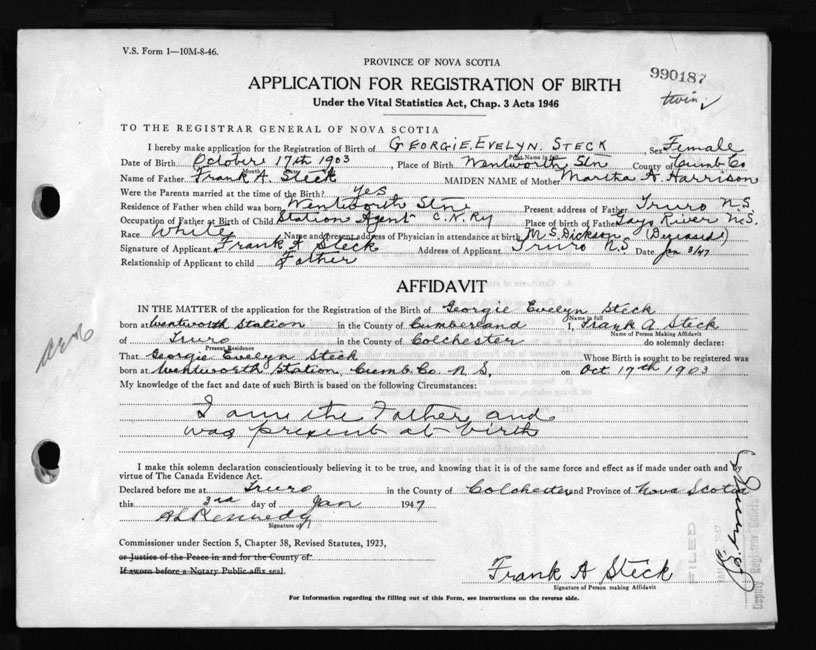 V.S. Form 1—10M-8-46.
PROVINCE OF NOVA SCOTIA
990187
APPLICATION FOR REGISTRATION OF BIRTH
twin
Under the Vital Statistics Act, Chap. 3 Acts 1946
TO THE REGISTRAR GENERAL OF NOVA SCOTIA
I hereby make application for the Registration of Birth of GEORGIE. EVELYN. STECK, Sex Female
Print Name in full
Date of Birth October 17th 1903, Place of Birth Wentworth Stn County of Cumb Co
Month
Name of Father Frank A. Steck MAIDEN NAME of Mother Martha A. Harrison
Were the Parents married at the time of the Birth? yes
Residence of Father when child was born Wentworth Stn Present address of Father Truro N.S
Occupation of Father at Birth of Child Station Agent C.N.Ry Place of birth of Father Tays River N.S.
Race White Name and present address of Physician in attendance at birth M.S. Dickson
Signature of Applicant Frank A Steck Address of Applicant Truro N.S Date Jan 3/47
Relationship of Applicant to child Father
AFFIDAVIT
IN THE MATTER of the application for the Registration of Birth of Georgie Evelyn Steck
Name in full
born at Wentworth Station in the County of Cumberland I, Frank A Steck
Name of Person Making Affidavit
of Truro in the County of Colchester do solemnly declare:
Present Residence
That Georgie Evelyn Steck Whose Birth is sought to be registered was
born at Wentworth Station, Cumb. Co. N.S. on Oct 17th 1903
My knowledge of the fact and date of such Birth is based on the following Circumstances:
I am the Father and
was present at birth
I make this solemn declaration conscientiously believing it to be true, and knowing that it is of the same force and effect as if made under oath and by
virtue of The Canada Evidence Act.
Declared before me at Truro in the County of Colchester and Province of Nova Scotia
this 3rd day of Jan 1947
A L Kennedy
Signature of
Commissioner under Section 5, Chapter 38, Revised Statutes, 1923,
or Justice of the Peace in and for the County of
If sworn before a Notary Public affix seal.
Frank A Steck
Signature of Person making Affidavit
For Information regarding the filling out of this Form, see instructions on the reverse side.
Deputy Registrar General